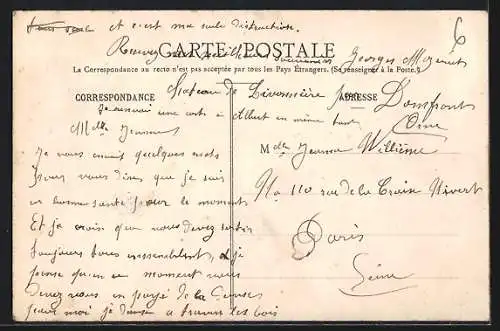 et c'est ma seule distraction.
Recevez mes meilleurs souvenirs Georges
CARTE POSTALE
La Correspondance au recto n'est pas acceptée par tous les Pays Étrangers. (Se renseigner à la Poste.)
Chateau de Livonnière par Domfront
Orne
CORRESPONDANCE
ADRESSE
une carte à Albert en même temps
Melle Jeanne
Je vous envoie quelques mots
pour vous dire que je suis
en bonne santé pour le moment
Et je crois que vous devez
toujours tous ensemble et je
pense qu'en ce moment vous
devez vous en payé de la danse
pour moi je danse a travers les bois
Melle Jeanne Willième
No 110 rue de la Croix Nivert
Paris
Seine
6